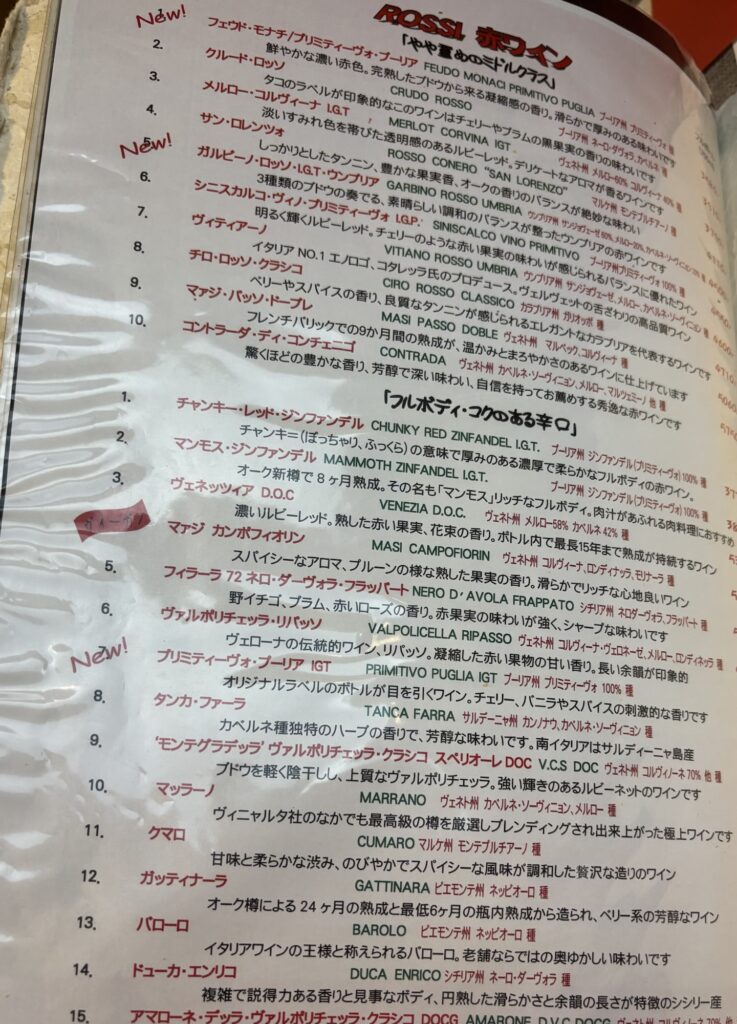 ROSSI 赤ワイン
「やや重めのミドルクラス」
New!
フェウド・モナチ/プリミティーヴォ・プーリア FEUDO MONACI PRIMITIVO PUGLIA プーリア州 プリミティーヴォ 種
鮮やかな濃い赤色。完熟したブドウから来る凝縮感の香り。滑らかで厚みのある味わいです
2. クルード・ロッソ CRUDO ROSSO プーリア州 ネーロ・ダヴォラ、カベルネ 種
タコのラベルが印象的なこのワインはチェリーやプラムの黒果実の香りの味わいです
3. メルロー・コルヴィーナ I.G.T MERLOT CORVINA IGT ヴェネト州 メルロー60% コルヴィーナ 40% 種
淡いすみれ色を帯びた透明感のあるルビーレッド。デリケートなアロマが香るワインです
4. サン・ロレンツォ ROSSO CONERO "SAN LORENZO" マルケ州 モンテプルチアーノ 種
しっかりとしたタンニン、豊かな果実香、オークの香りのバランスが絶妙な味わい
New!
5. ガルビーノ・ロッソ・I.G.T・ウンブリア GARBINO ROSSO UMBRIA ウンブリア州 サンジョヴェーゼ
3種類のブドウの奏でる、素晴らしい調和のバランスが整ったウンブリアの赤ワインです
6. シニスカルコ・ヴィノ・プリミティーヴォ I.G.P. SINISCALCO VINO PRIMITIVO プーリア州 プリミティーヴォ100% 種
明るく輝くルビーレッド。チェリーのような赤い果実の味わいが感じられるバランスに優れたワイン
7. ヴィティアーノ VITIANO ROSSO UMBRIA ウンブリア州 サンジョヴェーゼ、メルロー、カベルネ・ソーヴィニヨン 種
イタリア NO.1 エノロゴ、コタレッラ氏のプロデュース。ヴェルヴェットの舌ざわりの高品質ワイン
8. チロ・ロッソ・クラシコ CIRO ROSSO CLASSICO カラブリア州 ガリオッポ 種
ベリーやスパイスの香り、良質なタンニンが感じられるエレガントなカラブリアを代表するワインです
9. マァジ・パッソ・ドープレ MASI PASSO DOBLE ヴェネト州 マルベック、コルヴィーナ 種
フレンチバリックでの9か月間の熟成が、温かみとまろやかさのあるワインに仕上げています
10. コントラーダ・ディ・コンチェニゴ CONTRADA ヴェネト州 カベルネ・ソーヴィニョン、メルロー、マルツェミーノ 他 種
驚くほどの豊かな香り、芳醇で深い味わい、自信を持ってお薦めする秀逸な赤ワインです
「フルボディ・コクのある辛口」
1. チャンキー・レッド・ジンファンデル CHUNKY RED ZINFANDEL I.G.T. プーリア州 ジンファンデル(プリミティーヴォ)100% 種
チャンキ=(ぽっちゃり、ふっくら)の意味で厚みのある濃厚で柔らかなフルボディの赤ワイン。
2. マンモス・ジンファンデル MAMMOTH ZINFANDEL I.G.T. プーリア州 ジンファンデル(プリミティーヴォ)100% 種
オーク新樽で8ヶ月熟成。その名も「マンモス」リッチなフルボディ。肉汁があふれる肉料理におすすめ
3. ヴェネッツィア D.O.C VENEZIA D.O.C. ヴェネト州 メルロー58% カベルネ 42% 種
濃いルビーレッド。熟した赤い果実、花束の香り。ボトル内で最長15年まで熟成が持続するワイン
マァジ カンポフィオリン MASI CAMPOFIORIN ヴェネト州 コルヴィーナ、ロンディナッラ、モリナーラ 種
スパイシーなアロマ、プルーンの様な熟した果実の香り。滑らかでリッチな心地良いワイン
5. フィラーラ 72 ネロ・ダーヴォラ・フラッパート NERO D'AVOLA FRAPPATO シチリア州 ネロダーヴォラ、フラッパート 種
野イチゴ、プラム、赤いローズの香り。赤果実の味わいが強く、シャープな味わいです
6. ヴァルポリチェッラ・リパッソ VALPOLICELLA RIPASSO ヴェネト州 コルヴィーナ・ヴェロネーゼ、メルロー、ロンディネッラ 種
ヴェローナの伝統的ワイン、リパッソ。凝縮した赤い果物の甘い香り。長い余韻が印象的
New!
7. プリミティーヴォ・プーリア IGT PRIMITIVO PUGLIA IGT プーリア州 プリミティーヴォ 100% 種
オリジナルラベルのボトルが目を引くワイン。チェリー、バニラやスパイスの刺激的な香りです
8. タンカ・ファーラ TANCA FARRA サルデーニャ州 カンノナウ、カベルネ・ソーヴィニョン 種
カベルネ種独特のハーブの香りで、芳醇な味わいです。南イタリアはサルディーニャ島産
9. 'モンテグラデッラ' ヴァルポリチェッラ・クラシコ スペリオーレ DOC V.C.S DOC ヴェネト州 コルヴィノーネ 70% 他 種
ブドウを軽く陰干しし、上質なヴァルポリチェッラ。強い輝きのあるルビーネットのワインです
10. マッラーノ MARRANO ヴェネト州 カベルネ・ソーヴィニョン、メルロー 種
ヴィニャルタ社のなかでも最高級の樽を厳選しブレンディングされ出来上がった極上ワインです
11. クマロ CUMARO マルケ州 モンテプルチアーノ 種
甘味と柔らかな渋み、のびやかでスパイシーな風味が調和した贅沢な造りのワイン
12. ガッティナーラ GATTINARA ピエモンテ州 ネッビオーロ 種
オーク樽による 24 ヶ月の熟成と最低6ヶ月の瓶内熟成から造られ、ベリー系の芳醇なワイン
13. バローロ BAROLO ピエモンテ州 ネッビオーロ 種
イタリアワインの王様と称えられるバローロ。老舗ならではの奥ゆかしい味わいです
14. ドゥーカ・エンリコ DUCA ENRICO シチリア州 ネーロ・ダーヴォラ 種
複雑で説得力ある香りと見事なボディ、円熟した滑らかさと余韻の長さが特徴のシシリー産
15. アマローネ・デッラ・ヴァルポリチェッラ・クラシコ DOCG AMARONE D.V.C DOCG